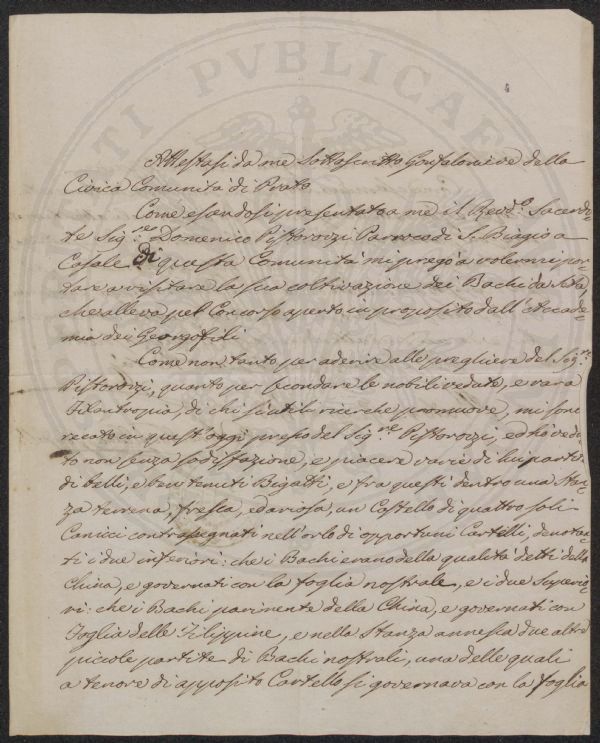 Attestasi da me Sottoscritto Gonfaloniere della
Civica Comunità di Prato
Come essendosi presentato a me il Revd.º Sacerdo-
te Sig.re Domenico Pistorozzi Parroco di S. Biagio a
Casale di questa Comunità mi pregò a volermi por-
tare a visitare la sua coltivazione dei Bachi da Seta
che alleva pel Concorso aperto in proposito dall'Accade-
mia dei Georgofili
Come non tanto per aderire alle preghiere del Sig.re
Pistorozzi, quanto per secondare le nobili vedute, e vera
Filantropia, di chi sì utili ricerche promuove, mi sono
recato in quest'oggi presso del Sig.re Pistorozzi, ed hò vedu-
to non senza sodisfazione, e piacere varie di lui partite
di belli, e ben tenuti Bigatti, e fra questi dentro una Stan-
za terrena, fresca, ed ariosa, un Castello di quattro soli
Canicci contrasegnati nell'orlo di opportuni Cartelli, denotan-
ti i due inferiori: che i Bachi erano della qualità detti della
China, e governati con la foglia nostrale, e i due Superio-
ri: che i Bachi parimente della China, e governati con
Foglia delle Filippine, e nella Stanza annessa due altre
piccole partite di Bachi nostrali, una delle quali
a tenore di apposito Cartello si governava con la foglia